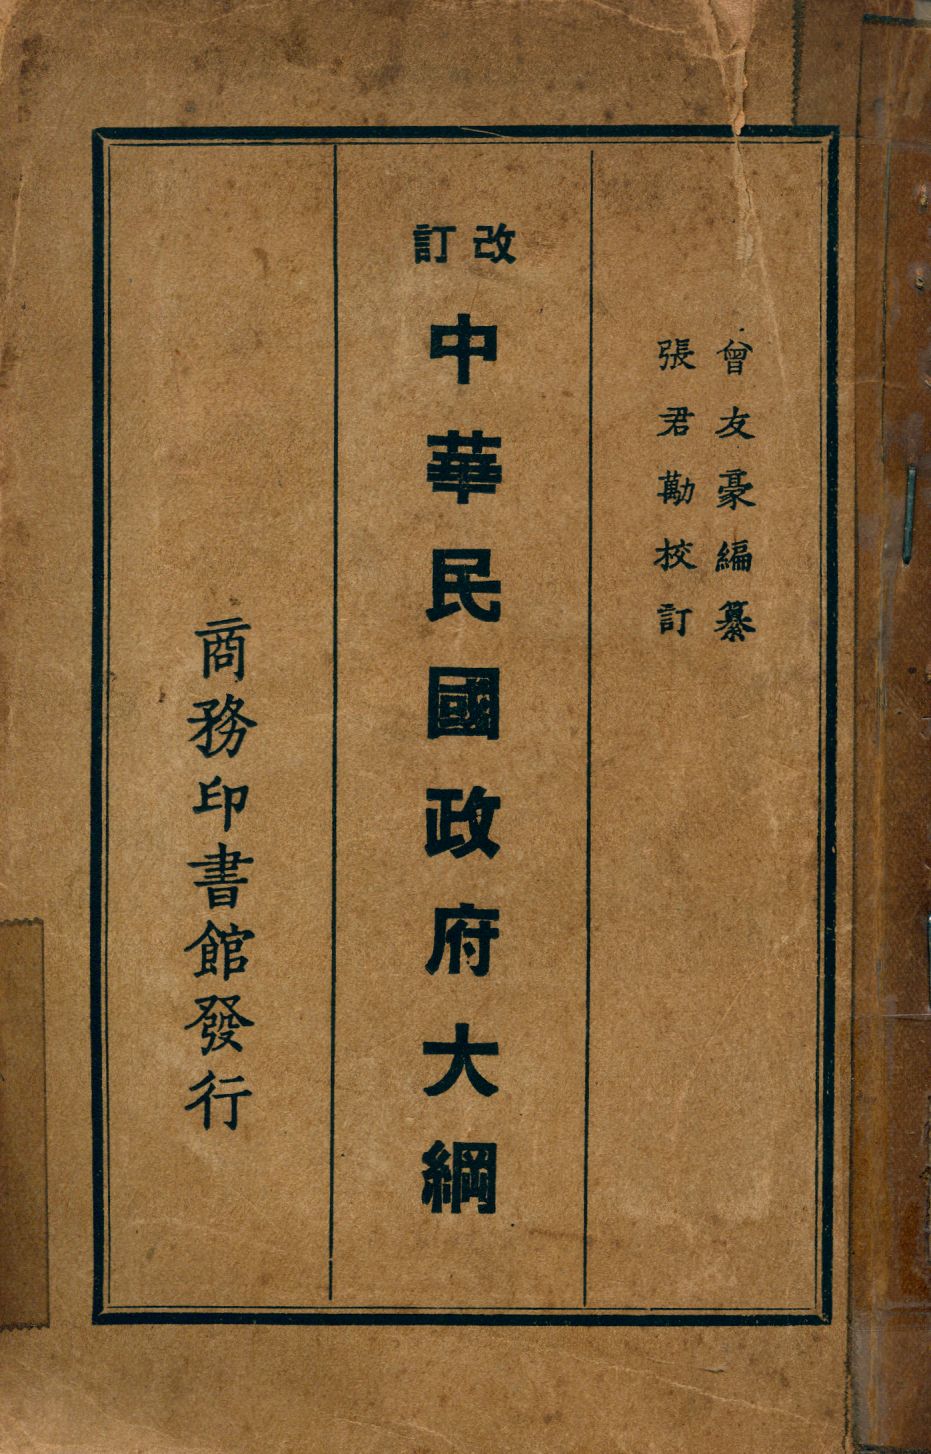 曾友豪編纂
張君勱校訂
改訂
中華民國政府大綱
商務印書館發行